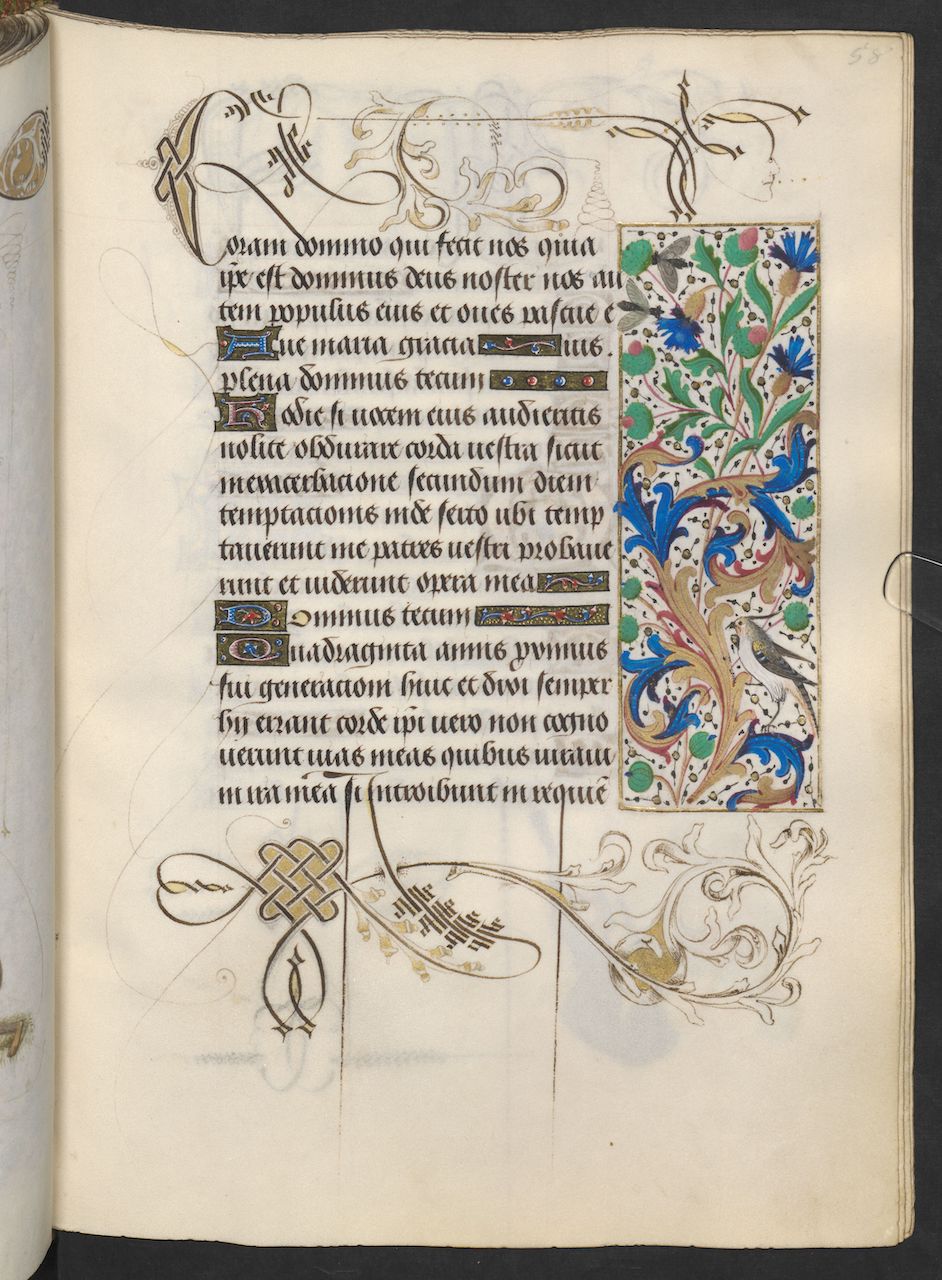 58
Coram domino qui fecit nos quia
ipse est dominus deus noster nos au
tem populus eius et oues pascue e
Aue maria gracia ius.
plena dominus tecum
Hodie si uocem eius audieritis
nolite obdurare corda uestra sicut
in exacerbacione secundum diem
temptacionis in deserto ubi temp
tauerunt me patres uestri probaue
runt et uiderunt opera mea
Dominus tecum
Quadraginta annis proximus
fui generationi huic et dixi semper
hij errant corde ipi uero non cogno
uerunt uias meas quibus iuraui
in ira mea si introibunt in requiē